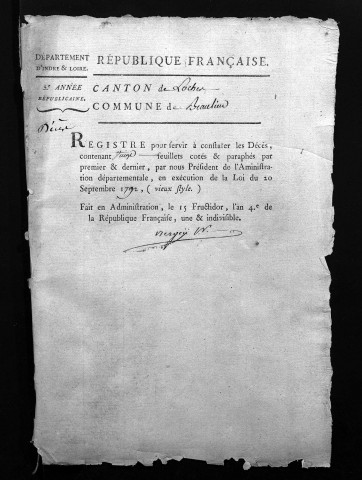 DÉPARTEMENT
D'INDRE & LOIRE.
RÉPUBLIQUE FRANÇAISE.
5e ANNÉE
RÉPUBLICAINE.
CANTON de Loches
COMMUNE de Beaulieu
Décès
REGISTRE pour servir à constater les Décès,
contenant feuillets cotés & paraphés par
premier & dernier, par nous Président de l'Aministra-
tion départementale, en exécution de la Loi du 20
Septembre 1792, (vieux style.)
Fait en Administration, le 15 Fructidor, l'an 4.e de
la République Française, une & indivisible.